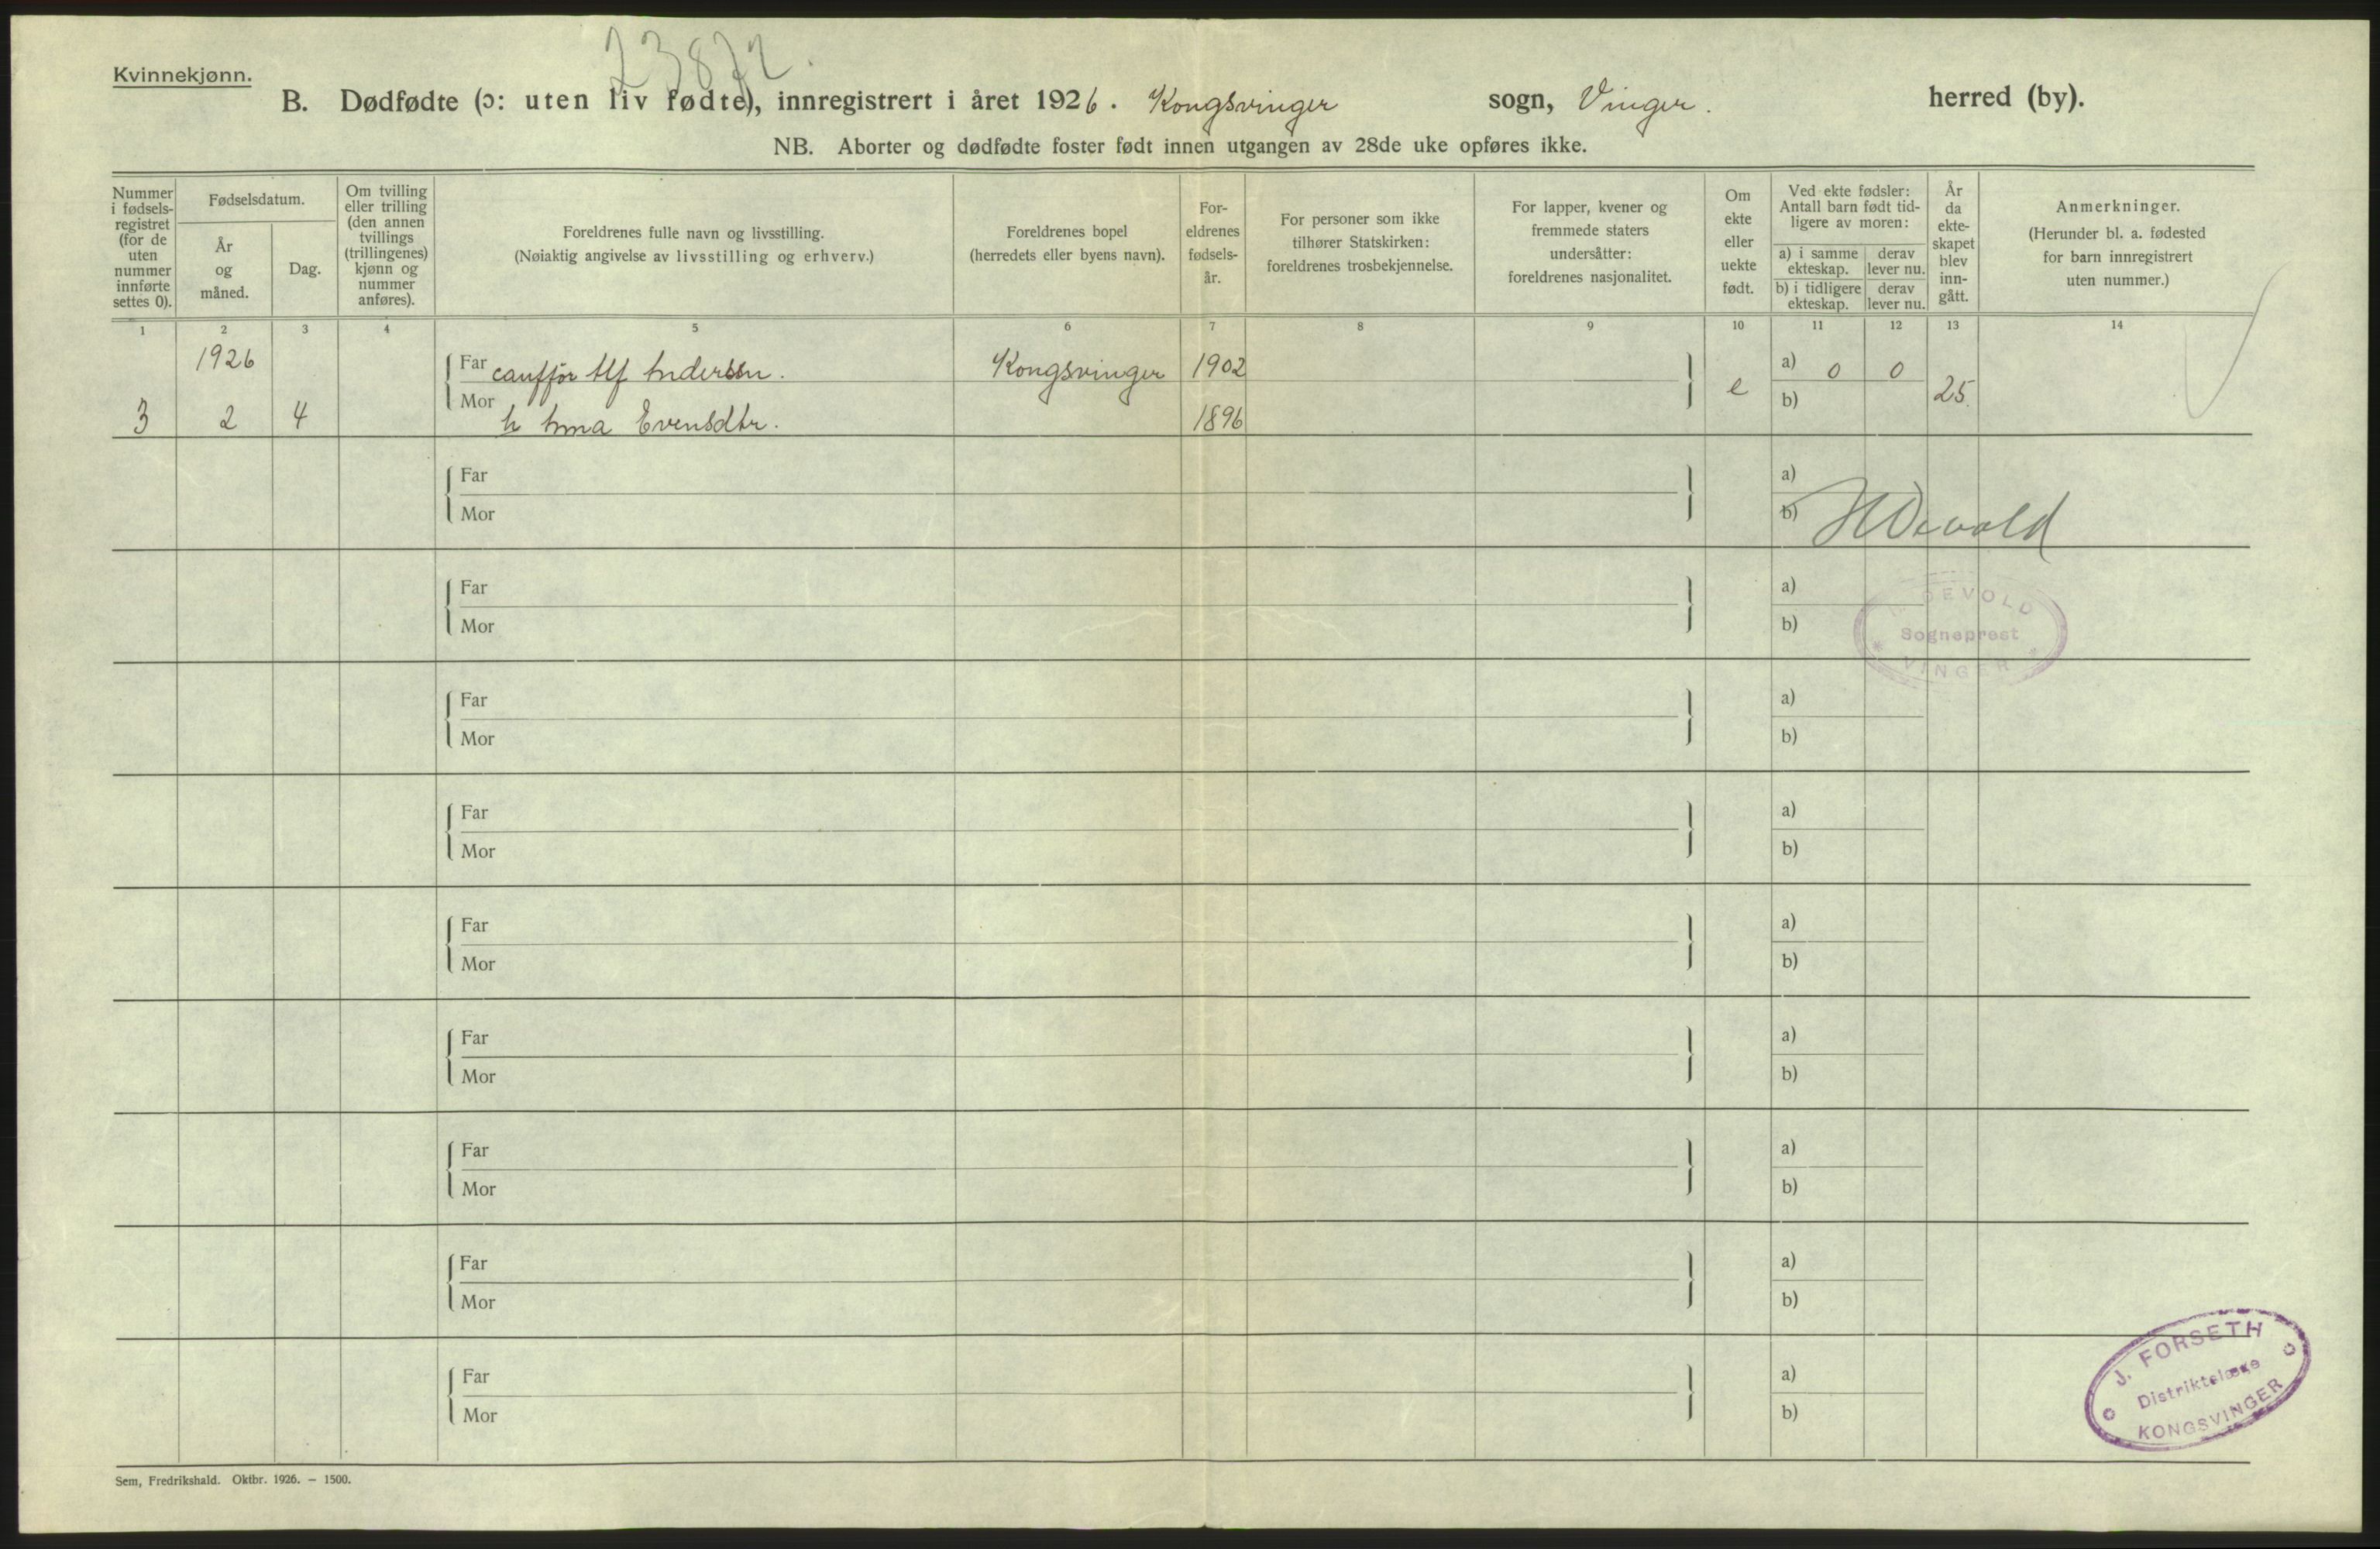 23872.
Kvinnekjønn.
B. Dødfødte (ɔ: uten liv fødte), innregistrert i året 1926. Kongsvinger sogn, Vinger. herred (by).
NB. Aborter og dødfødte foster født innen utgangen av 28de uke opføres ikke.
Nummer
i fødsels-
registret
(for de
uten
nummer
innførte
settes 0).
Fødselsdatum.
År
og
måned.
Dag.
Om tvilling
eller trilling
(den annen
tvillings
(trillingenes)
kjønn og
nummer
anføres).
Foreldrenes fulle navn og livsstilling.
(Nøiaktig angivelse av livsstilling og erhverv.)
Foreldrenes bopel
(herredets eller byens navn).
For-
eldrenes
fødsels-
år.
For personer som ikke
tilhører Statskirken:
foreldrenes trosbekjennelse.
For lapper, kvener og
fremmede staters
undersåtter:
foreldrenes nasjonalitet.
Om
ekte
eller
uekte
født.
Ved ekte fødsler:
Antall barn født tid-
ligere av moren:
a) i samme
ekteskap.
derav
lever nu.
b) i tidligere
ekteskap.
derav
lever nu.
År
da
ekte-
skapet
blev
inn-
gått.
Anmerkninger.
(Herunder bl. a. fødested
for barn innregistrert
uten nummer.)
1 2 3 4 5 6 7 8 9 10 11 12 13 14
1926 Far Alf Anderssn. Kongsvinger 1902 e a) 0 0 25.
3 2 4 Mor Evensdtr. 1896 b)
Far a)
Mor b) HDevold
Far a)
Mor b)
H. DEVOLD
Sogneprest
* VINGER *
Far a)
Mor b)
Far a)
Mor b)
Far a)
Mor b)
Far a)
Mor b)
Far a)
Mor b)
Far a)
Mor b)
Far a)
Mor b)
J. FORSETH
Distriktslæge
KONGSVINGER
Sem, Fredrikshald. Oktbr. 1926. — 1500.